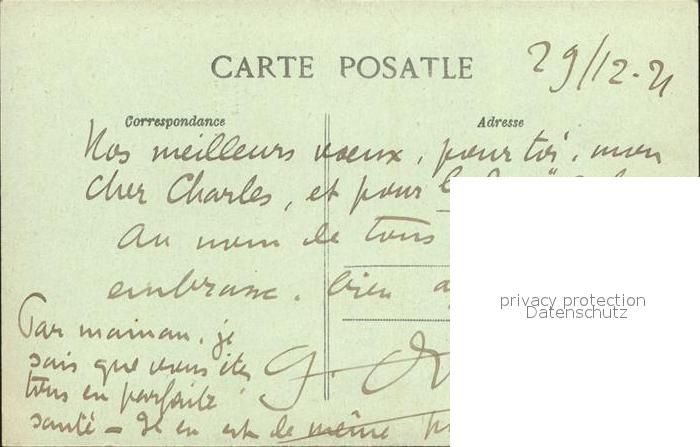 CARTE POSATLE
29/12-21
Correspondance
Adresse
Nos meilleurs vœux, pour toi, mon
cher Charles, et pour
Au nom de tous
embrasse. bien
privacy protection
Datenschutz
Par maman, je
sais que vous êtes
tous en parfaite
santé - Il en est de même
G.